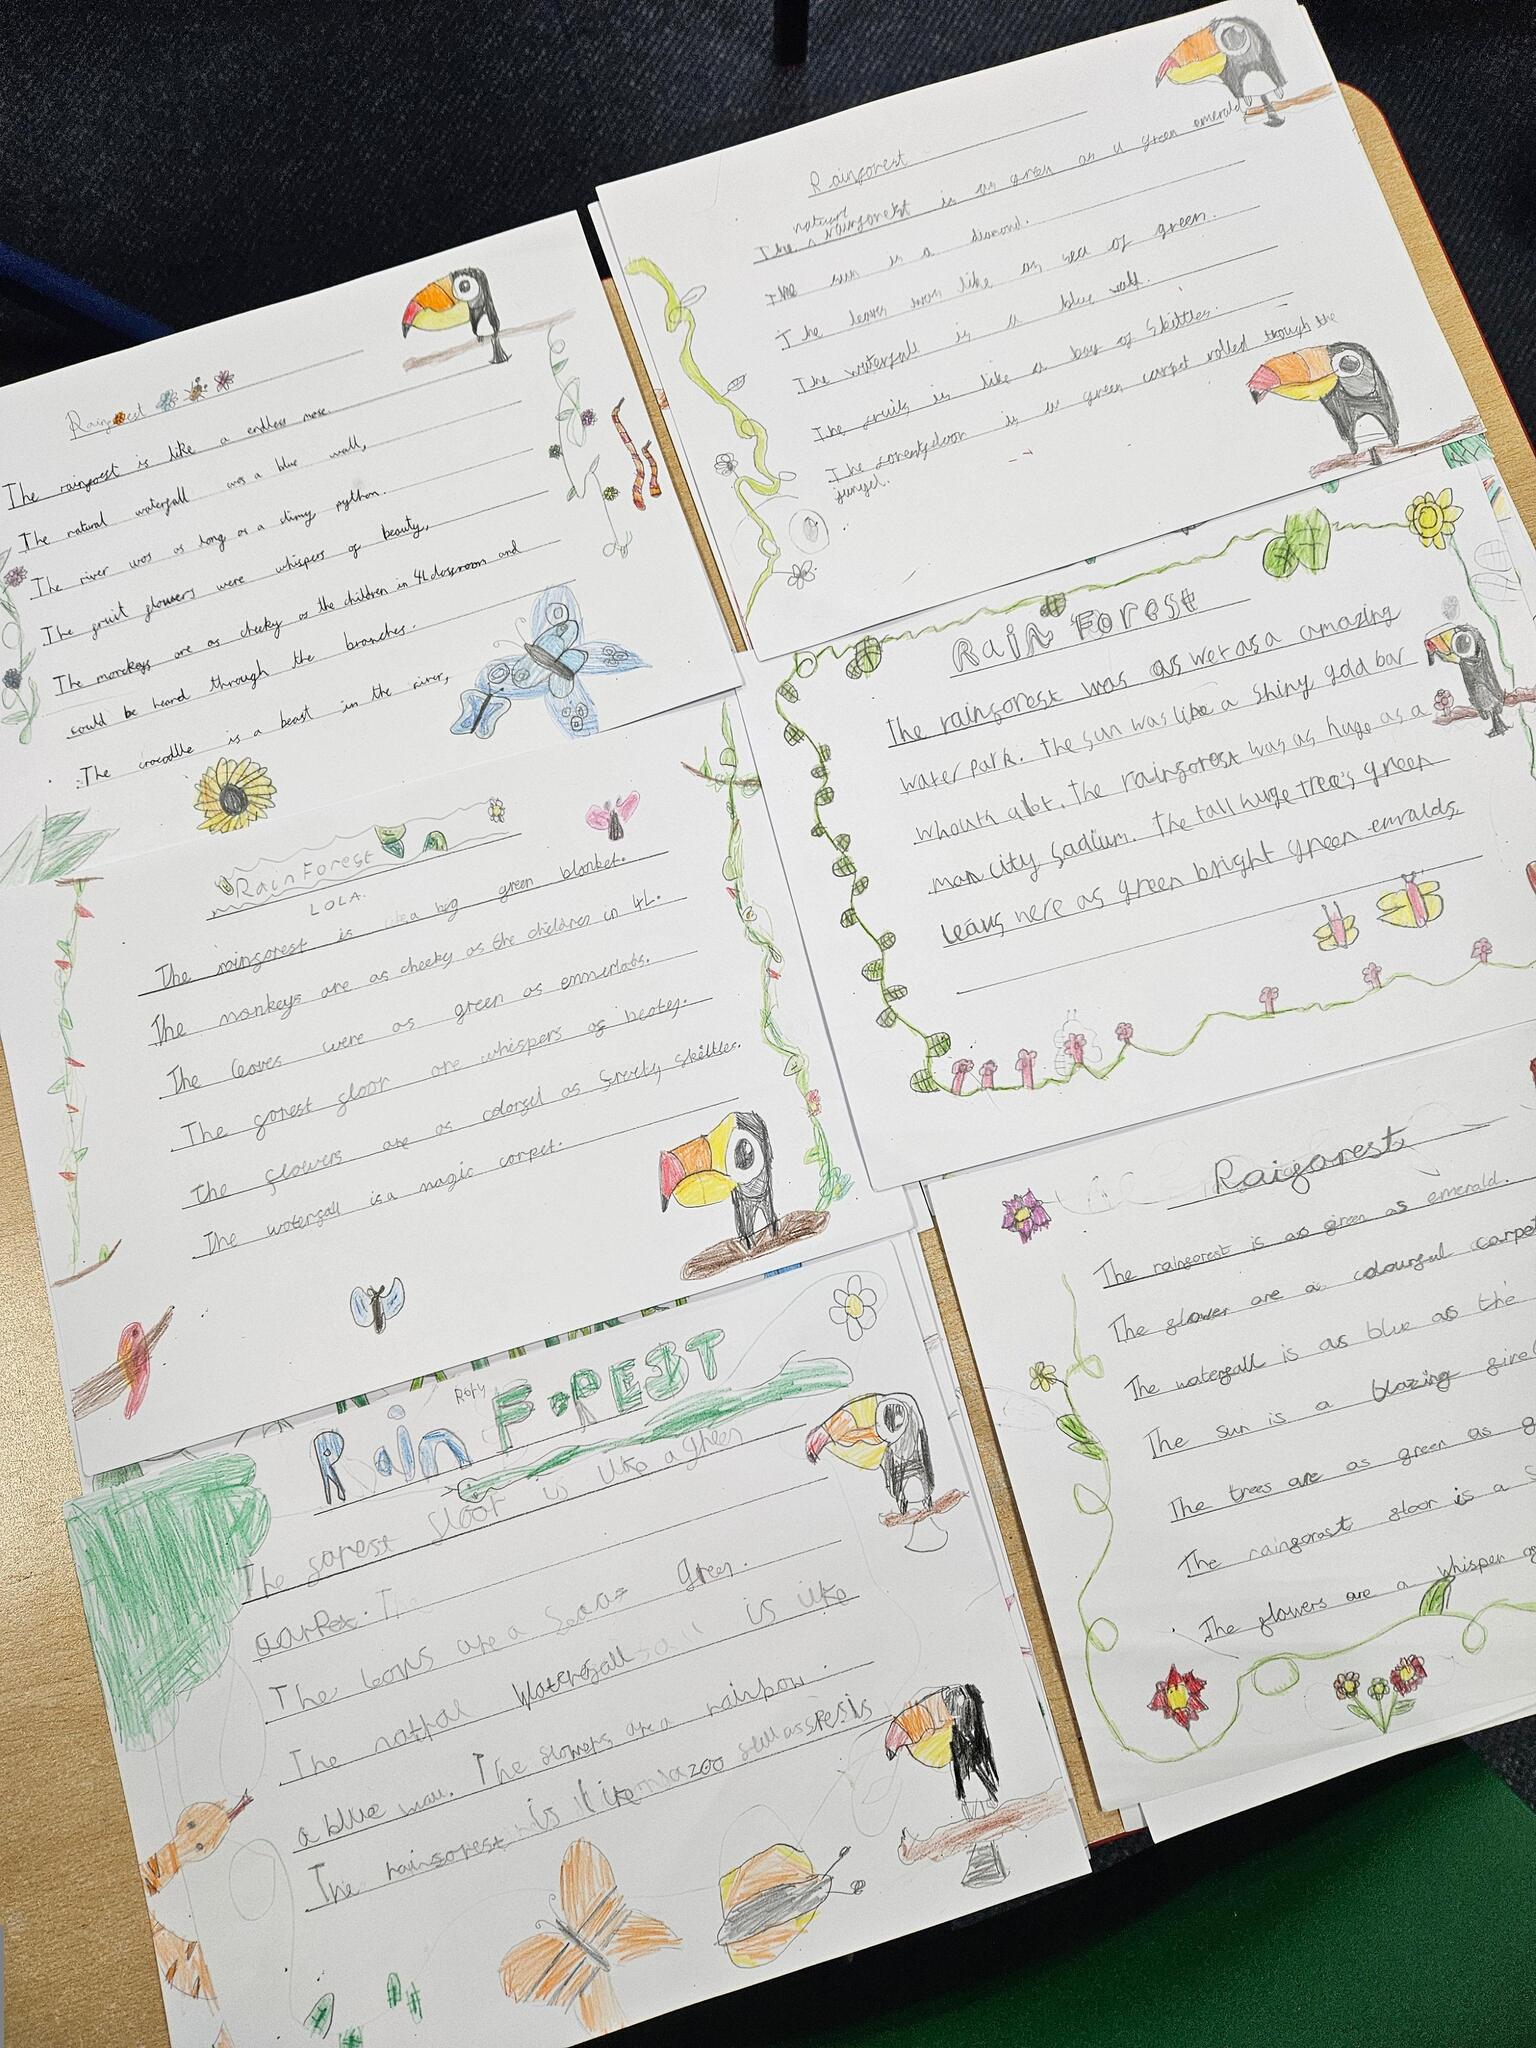 Rainforest
The rainforest is like a endless maze.
The natural waterfall was a blue wall,
The river was as long as a slimy python.
The fruit flowers were whispers of beauty,
The monkeys are as cheeky as the children in 4L classroom and
could be heard through the branches.
The crocodile is a beast in the river,
Rainforest
nature
The rainforest is as green as a green emerald
The sun is a diamond.
The leaves was like as sea of green.
The waterfall is a blue wall.
The fruits is like a bag of Skittles.
The forestfloor is a green carpet rolled though the
jungel.
Rain Forest
LOLA.
The rainforest is like a big green blanket.
The monkeys are as cheeky as the children in 4L.
The leaves were as green as emmerlabs.
The forest floor are whispers of beatey.
The flowers are as colorfel as fruity Skittles.
The waterfall is a magic carpet.
RaiN FOREST
The rainforest was as wet as a amazing
water park. The sun was like a shiny gold bar
whouth alot. The rainforest was as huge as a
man city sadium. The tall huge tree's green
leaus here as green bright green emralds.
Raiforest
The rainforest is as green as emerald.
The flower are a colourful carpet
The waterfall is as blue as the
The sun is a blazing
The trees are as green as
The rainforast floor is a
The flowers are a whisper
Rory
Rain FOREST
The forest floor is like a green
carpet. The
The leaves are a sea of green.
The notral waterfall is like
a blue wall. The flowers are a rainbow.
The rainforest is like a zoo